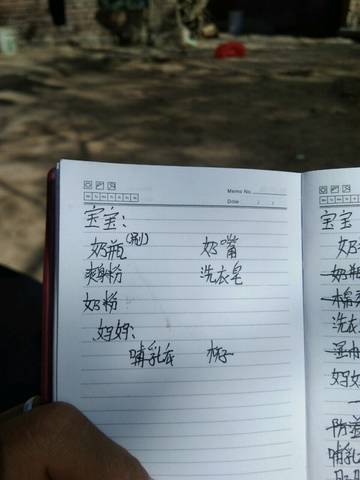 Memo No.
Date / /
宝宝:
奶瓶(刷) 奶嘴
爽身粉 洗衣皂
奶粉
妈妈:
哺乳衣 杯子
宝宝
奶
奶瓶
棉柔
洗衣
妈妈
防溢
哺乳